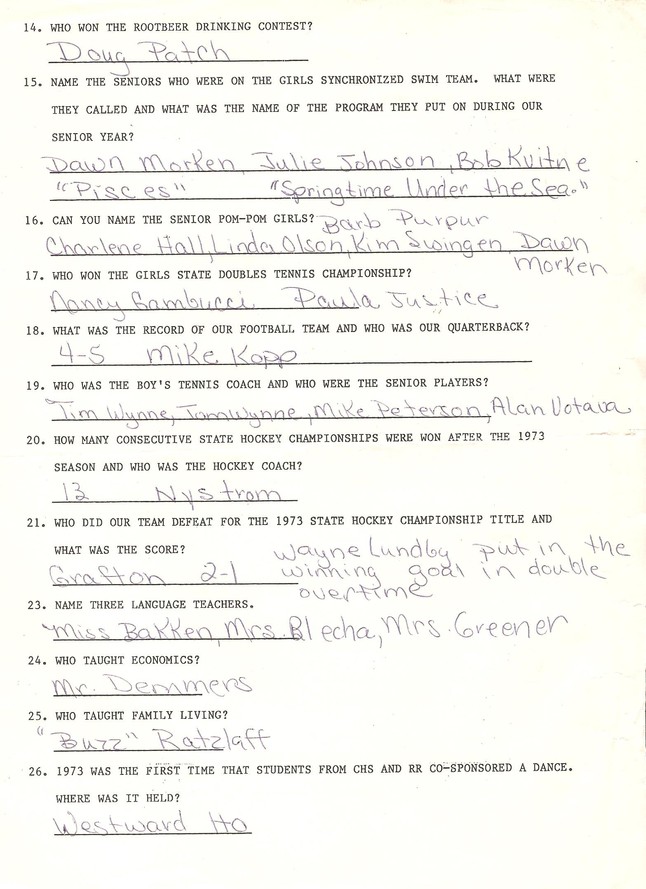 14. WHO WON THE ROOTBEER DRINKING CONTEST?
Doug Patch
15. NAME THE SENIORS WHO WERE ON THE GIRLS SYNCHRONIZED SWIM TEAM. WHAT WERE
THEY CALLED AND WHAT WAS THE NAME OF THE PROGRAM THEY PUT ON DURING OUR
SENIOR YEAR?
Dawn Morken, Julie Johnson, Bob Kvitne
"Pisces" "Springtime Under the Sea."
16. CAN YOU NAME THE SENIOR POM-POM GIRLS? Barb Purpur
Charlene Hall, Linda Olson, Kim Swingen, Dawn
Morken
17. WHO WON THE GIRLS STATE DOUBLES TENNIS CHAMPIONSHIP?
Nancy Gambucci Paula Justice
18. WHAT WAS THE RECORD OF OUR FOOTBALL TEAM AND WHO WAS OUR QUARTERBACK?
4-5 Mike Kopp
19. WHO WAS THE BOY'S TENNIS COACH AND WHO WERE THE SENIOR PLAYERS?
Tim Wynne, Tom Wynne, Mike Peterson, Alan Votava
20. HOW MANY CONSECUTIVE STATE HOCKEY CHAMPIONSHIPS WERE WON AFTER THE 1973
SEASON AND WHO WAS THE HOCKEY COACH?
13 Nystrom
21. WHO DID OUR TEAM DEFEAT FOR THE 1973 STATE HOCKEY CHAMPIONSHIP TITLE AND
WHAT WAS THE SCORE? Wayne Lundby put in the
Grafton 2-1 winning goal in double
overtime
23. NAME THREE LANGUAGE TEACHERS.
Miss Bakken, Mrs. Blecha, Mrs. Greener
24. WHO TAUGHT ECONOMICS?
Mr. Demmers
25. WHO TAUGHT FAMILY LIVING?
"Buzz" Ratzlaff
26. 1973 WAS THE FIRST TIME THAT STUDENTS FROM CHS AND RR CO-SPONSORED A DANCE.
WHERE WAS IT HELD?
Westward Ho